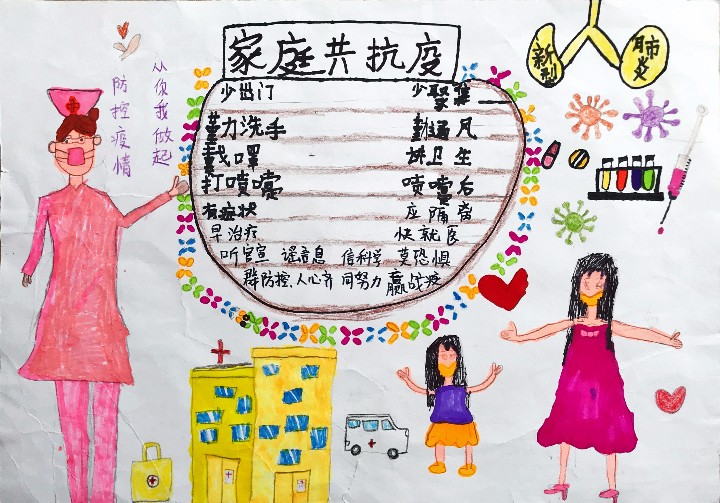 家庭共抗疫
新型
肺炎
从你我做起
防控疫情
少出门 少聚
力洗手 通风
戴 卫生
打喷嚏 喷嚏后
有症状 应隔
早治疗 快就医
听官宣 谣言息 信科学 莫恐惧
群防控、人心齐 同努力 赢战疫